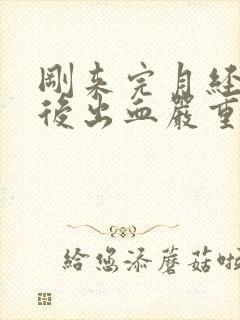 剛来完月経
後出血嚴重
給您添蘑菇啦